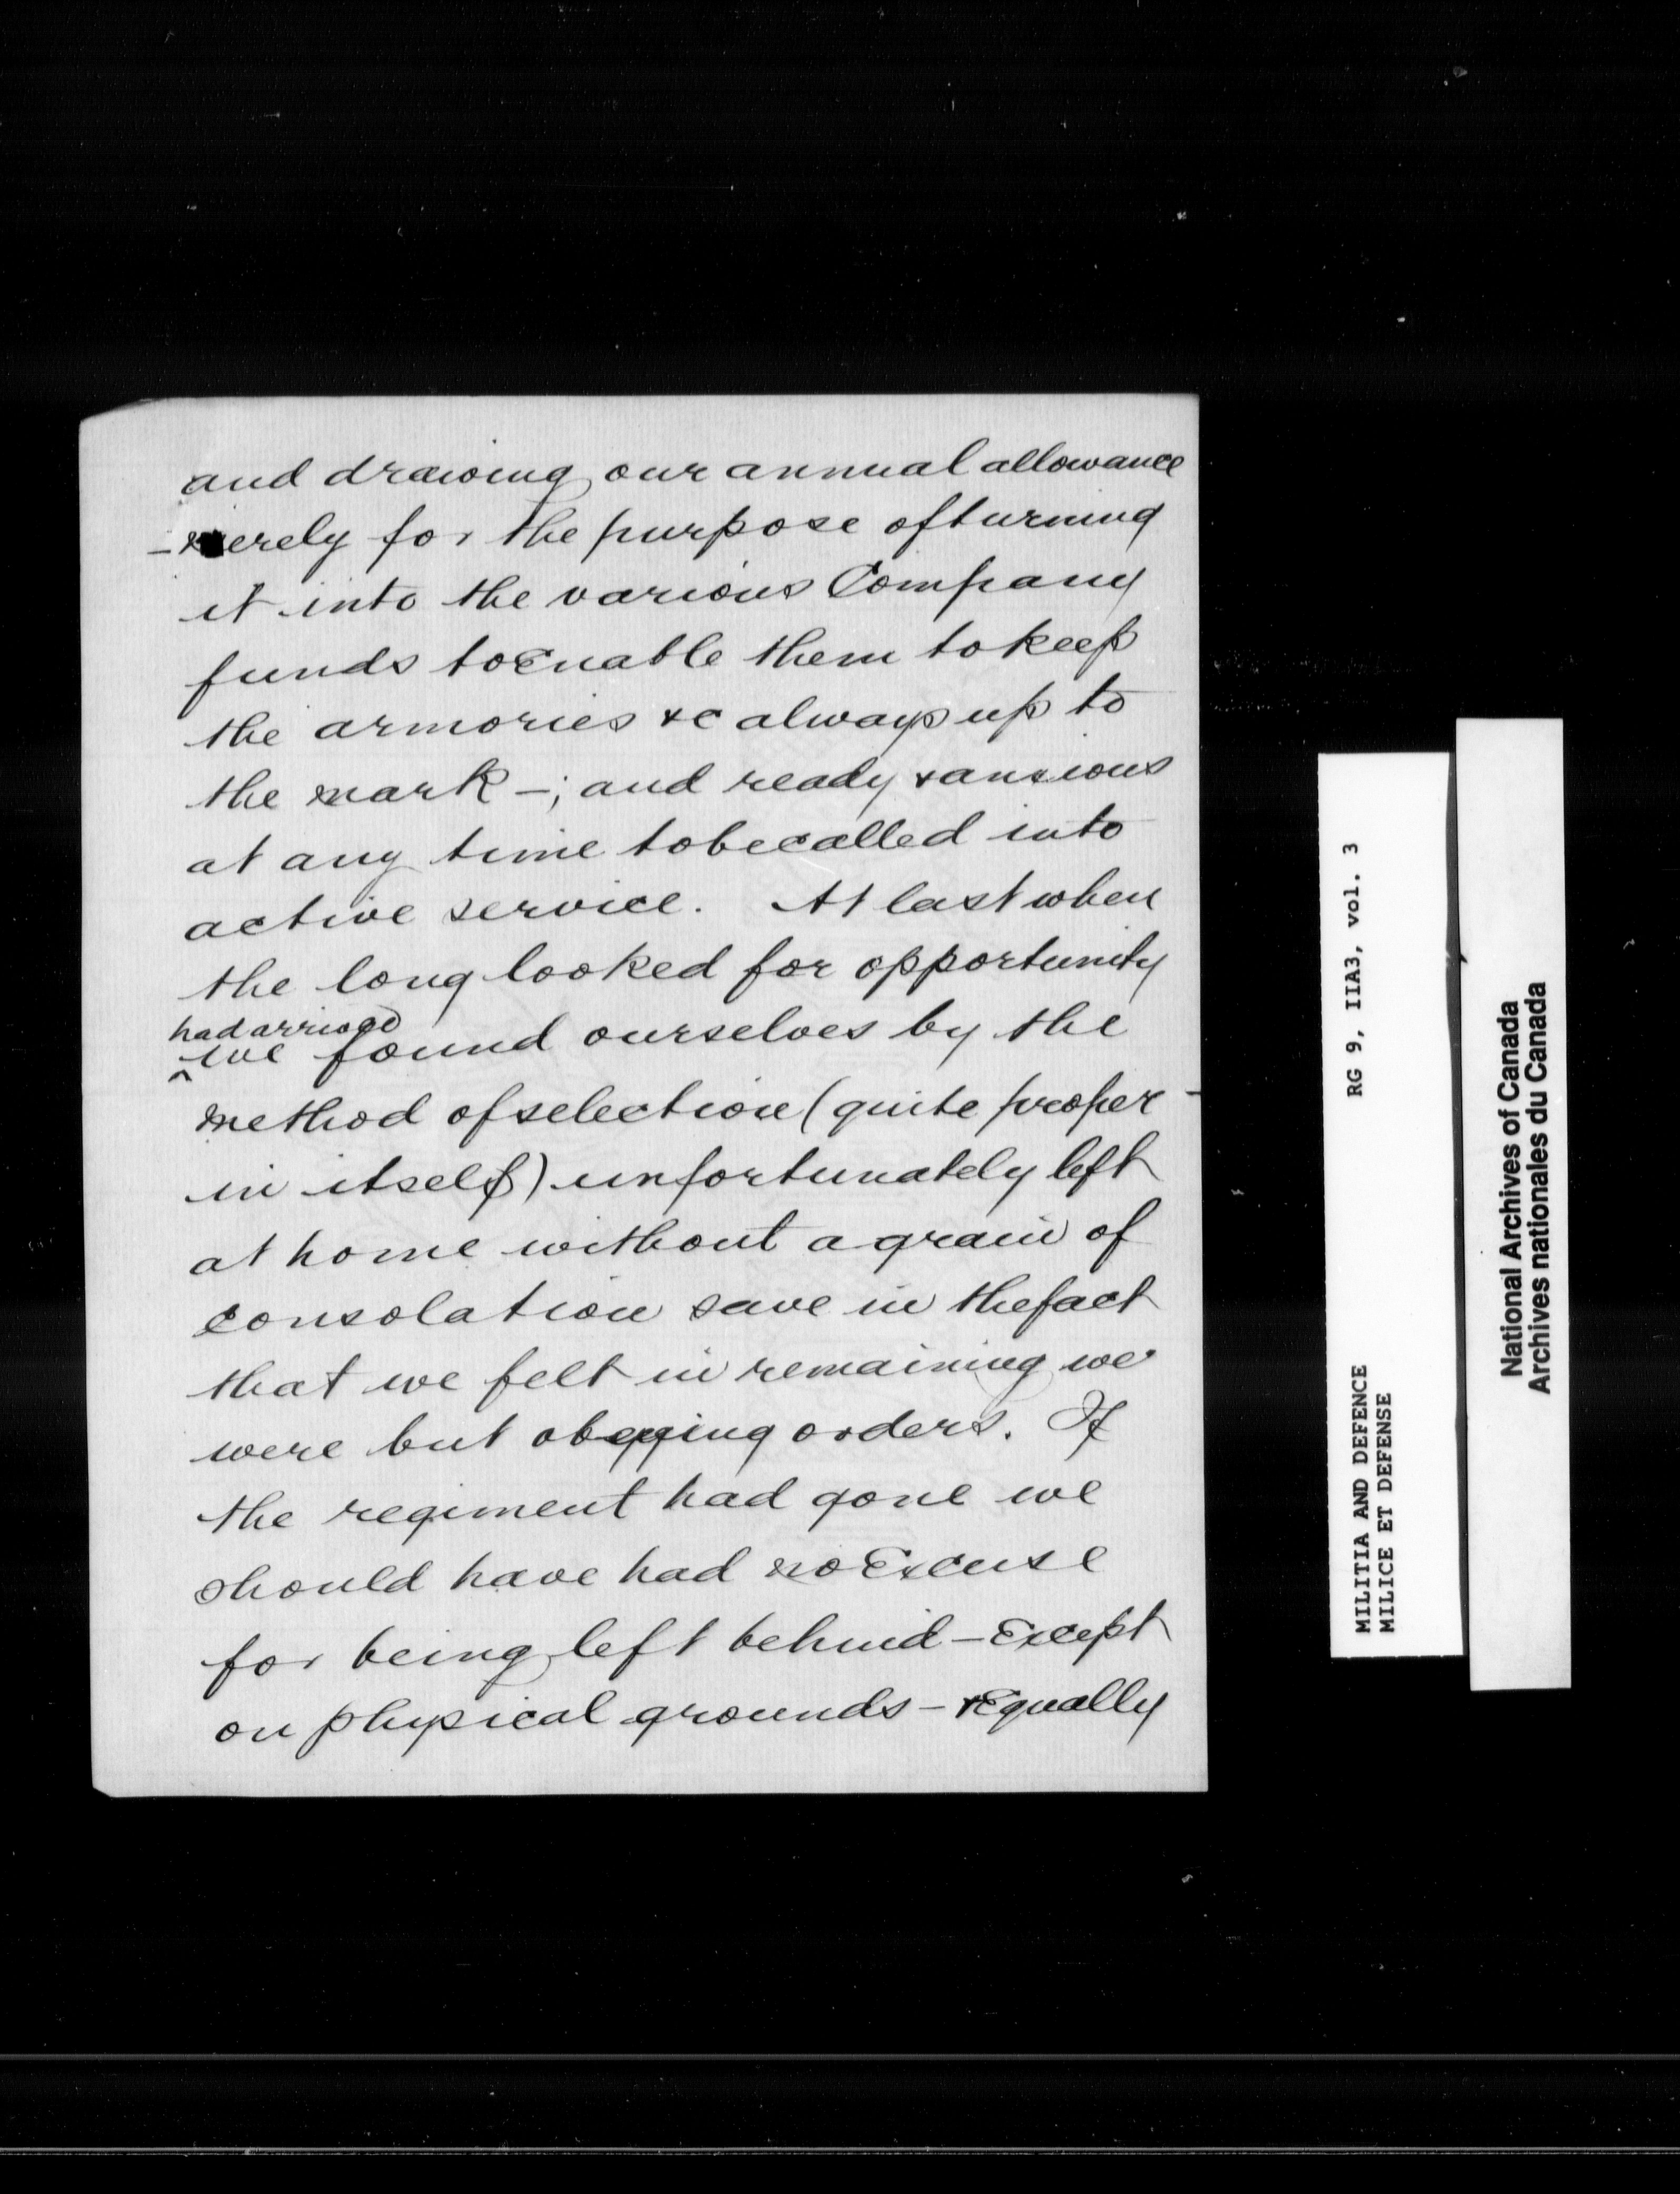 and drawing our annual allowance
- merely for the purpose of turning
it into the various Company
funds to Enable them to keep
the armories &c always up to
the mark -; and ready & anxious
at any time to be called into
active service. At last when
the long looked for opportunity
had arrived
^ we found ourselves by the
method of selection (quite proper -
in itself) unfortunately left
at home without a grain of
consolation save in the fact
that we felt in remaining we
were but obeying orders. If
the regiment had gone we
should have had no Excuse
for being left behind - Except
on physical grounds - & Equally
MILITIA AND DEFENCE RG 9, IIA3, vol. 3
MILICE ET DEFENSE
National Archives of Canada
Archives nationales du Canada